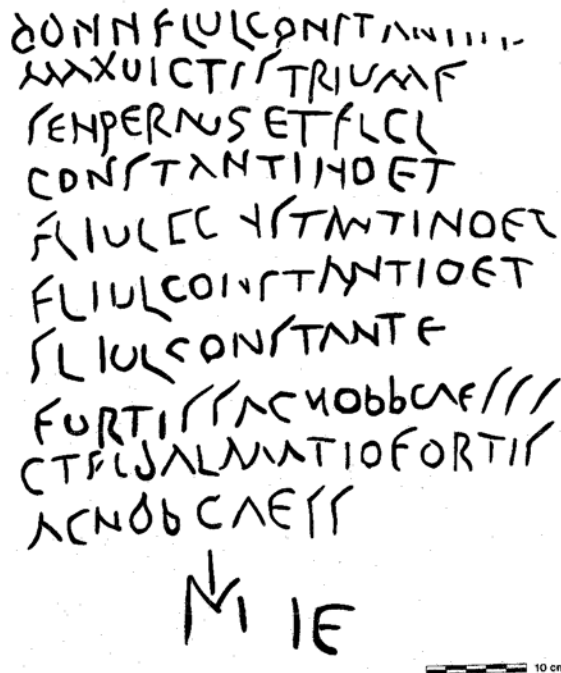 DONNFLULCONSTANIIII
MAXUICTSSTRIUMF
SENPERNUSETFLCL
CONSTANTINOET
FLIULCC NSTANTINOET
FLIULCONSTANTIOET
FLIULCONSTANTE
FURTISSACNObbCAESSS
CTFLDALMATIOFORTIS
ACNObCAESS
M IE
10 cm